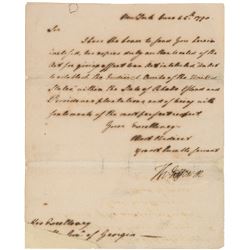 New York June 26th 1790
Sir
I have the honor to send you herein
certified, two copies duly authenticated of the
Act for giving effect to an Act intituled An Act
to establish the Judicial Courts of the United
States within the State of Rhode Island and
Providence plantations, and of being with
sentiments of the most perfect respect
Your Excellency's
Most Obedient
& most humble servant
Th: Jefferson
His Excellency
The Govr. of Georgia